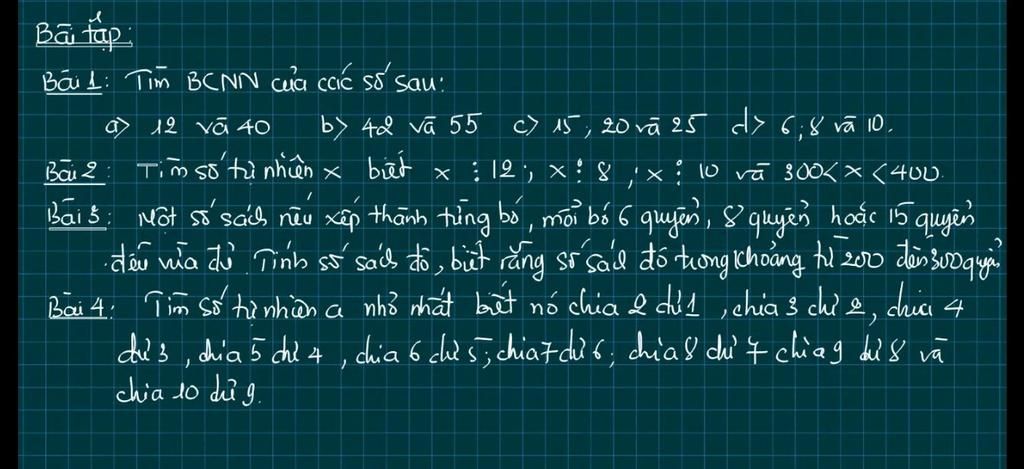 Bài tập:
Bài 1: Tìm BCNN của các số sau:
a> 12 và 40 b> 42 và 55 c> 15; 20 và 25 d> 6; 8 và 10.
Bài 2: Tìm số tự nhiên x biết x ⋮ 12; x ⋮ 8; x ⋮ 10 và 300 < x < 400.
Bài 3: Một số sách nếu xếp thành từng bó, mỗi bó 6 quyển, 8 quyển hoặc 15 quyển
đều vừa đủ. Tính số sách đó, biết rằng số sách đó trong khoảng từ 200 đến 300 quyển
Bài 4: Tìm số tự nhiên a nhỏ nhất biết nó chia 2 dư 1, chia 3 dư 2, chia 4
dư 3, chia 5 dư 4, chia 6 dư 5; chia 7 dư 6; chia 8 dư 7 chia 9 dư 8 và
chia 10 dư 9.